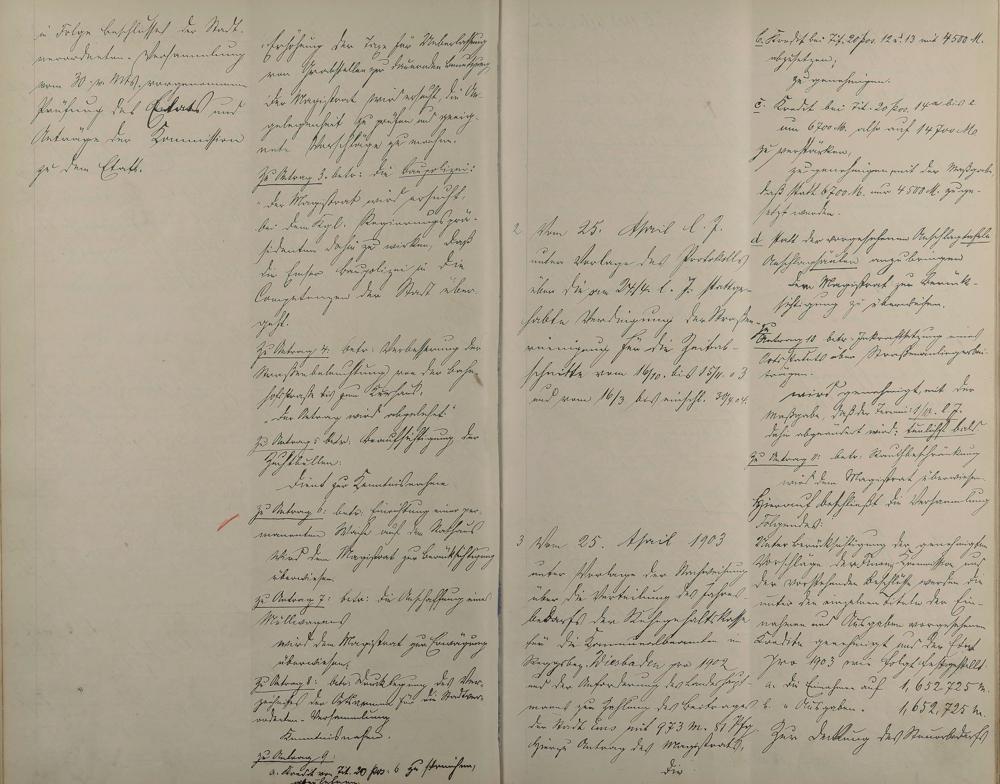 in Folge Beschlusses der Stadt-
verordneten-Versammlung
vom 30. v. Mts. vorgenommene
Prüfung des Etats und
Anträge der Kommission
zu dem Etat.
Erhöhung der Taxe für Ueberlassung
von Grabstellen zu dauernden Benutzung
der Magistrat wird ersucht, die An-
gelegenheit zu prüfen und geeig-
nete Vorschläge zu machen.
Zu Antrag 3. betr: die Baupolizei:
"der Magistrat wird ersucht,
bei dem Kgl. Regierungsprä-
sidenten dahin zu wirken, daß
die Emser Baupolizei in die
Competenzen der Stadt über-
geht.
Zu Antrag 4. betr: Verbesserung der
Straßenbeleuchtung von der Bahn-
hofstraße bis zum Kurhaus.
"der Antrag wird abgelehnt"
Zu Antrag 5 betr: Beaufsichtigung der
Zuchtbullen:
dient zur Kenntnisnahme
Zu Antrag 6: betr: Einrichtung einer per-
manenten Wache auf dem Rathaus
wird dem Magistrat zur Berücksichtigung
überwiesen
Zu Antrag 7: betr: die Anschaffung eines
Müllwagens
wird dem Magistrat zur Erwägung
überwiesen,
Zu Antrag 8: betr: Drucklegung des Ver-
zeichnisses der für die Stadtver-
ordneten-Versammlung
Kenntnisnahme.
Zu Antrag 9:
a. Kredit von Tit. 20 Pos. 6 zu streichen,
2 Vom 25. April l. J.
unter Vorlage des Protokolls
über die am 24/4. l. J. stattge-
habte Verdingung der Straßen-
reinigung für die Zeitab-
schnitte vom 16/10. bis 15/11. 03
und vom 16/3 bis einschl. 30/4 04.
3 Vom 25. April 1903
unter Vorlage der Nachweisung
über die Verteilung des Jahres-
bedarfs der Ruhegehaltskasse
für die Kommunalbeamten im
Reggsbez. Wiesbaden pro 1902
und der Anforderung des Landeshaupt-
manns zur Zahlung des Beitrages
der Stadt Ems mit 973 M. 51 Pfg
hierzu Antrag des Magistrats,
die
b. Kredit bei Tit. 20 Pos. 12 u. 13 mit 4500 M.
abzusetzen,
zu genehmigen.
c. Kredit bei Tit. 20 Pos. 14a bis e
um 6700 M. also auf 14700 M.
zu verstärken,
zu genehmigen mit der Maßgabe
daß statt 6700 M. nur 4500 M. zuge-
setzt werden.
d statt der vorgesehenen Anschlagtafeln
Anschlagsäulen anzubringen
dem Magistrat zur Berück-
sichtigung zu überweisen.
Zu Antrag 10 betr. Inkraftsetzung eines
Ortsstatuts über Straßenanliegerbei-
trägen.
wird genehmigt mit der
Maßgabe, daß der Termin l. J.
dahin abgeändert wird: tunlichst bald
Zu Antrag 11: betr:
wird dem Magistrat überwiesen
Hierauf beschließt die Versammlung
Folgendes:
Unter Berücksichtigung der genehmigten
Vorschläge der Finanz Kommission und
der vorstehenden Beschlüsse werden die
unter den einzelnen Titeln der Ein-
nahmen und Ausgaben vorgesehenen
Kredite genehmigt und der Etat
pro 1903 wie folgt festgestellt.
a. die Einnahmen auf 1,652,725 M.
b. " Ausgaben. 1,652,725 M.
Zur Deckung des Steuerbedarfs